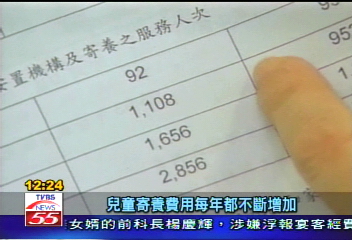 安置機構及寄養之服務人次
92
95
1,108
1,656
2,856
12:24
兒童寄養費用每年都不斷增加
TVBS
NEWS
55
女婿的前科長楊慶輝，涉嫌浮報宴客經費